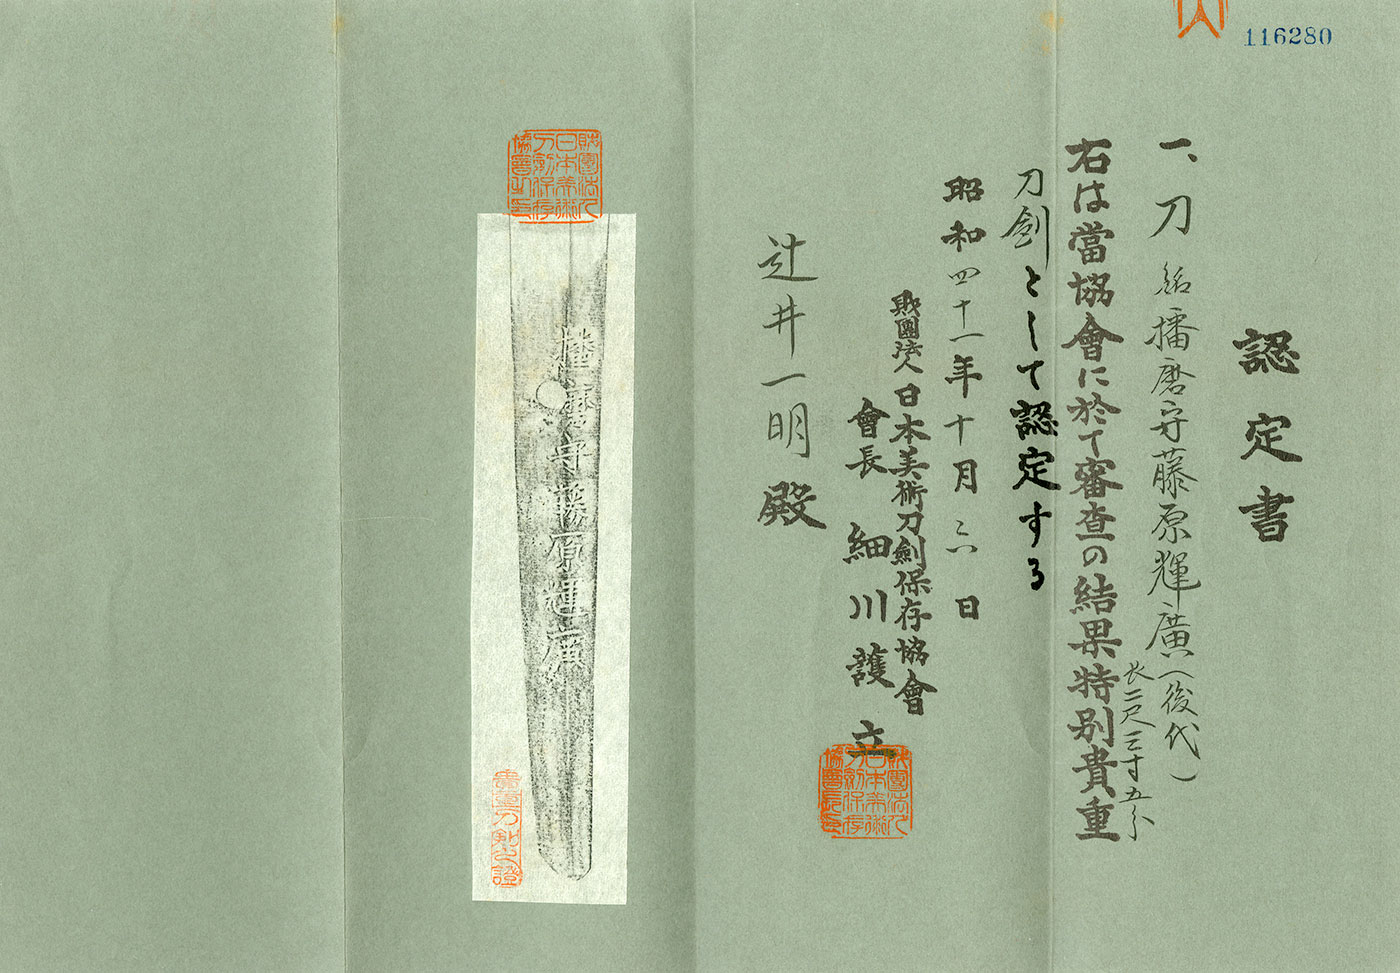 116280
認定書
一、刀 銘播磨守藤原輝廣(後代)
長二尺三寸五分
右は當協會に於て審査の結果特別貴重
刀劍として認定する
昭和四十一年十月二六日
財團法人日本美術刀劍保存協會
會長 細川護立
辻井一明殿
財團法人日本美術刀劍保存協會長印
財團法人日本美術刀劍保存協會之印
播磨守藤原輝廣
貴重刀劍之證